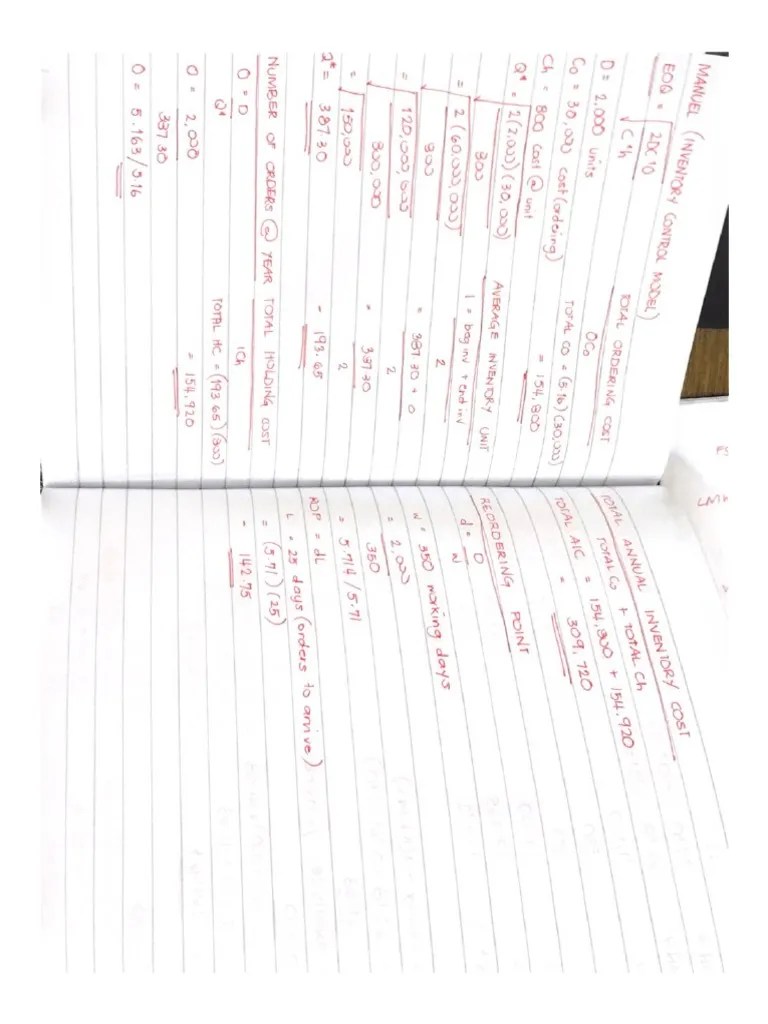 MANUEL (INVENTORY CONTROL MODEL)
EOQ = √2DC10
C*h
D = 2,000 units
Co = 30,000 cost (ordering)
Ch = 800 cost @ unit
Q* = √2(2,000)(30,000)
800
= √2(60,000,000)
800
= √120,000,000
800,000
= √150,000
Q* = 387.30
NUMBER OF ORDERS @ YEAR
O = D
Q*
O = 2,000
387.30
O = 5.163/5.16
TOTAL ORDERING COST
OCo
TOTAL CO = (5.16)(30,000)
= 154,800
AVERAGE INVENTORY UNIT
I = beg inv + end inv
2
= 387.30 + 0
2
= 387.30
2
= 193.65
TOTAL HOLDING COST
ICh
TOTAL HC = (193.65)(800)
= 154,920
TOTAL ANNUAL INVENTORY COST
TOTAL CO + TOTAL Ch
TOTAL AIC = 154,800 + 154.920
= 309,720
REORDERING POINT
d = D
N
N = 350 working days
= 2,000
350
= 5.714/5.71
ROP = dL
L = 25 days (orders to arrive)
= (5.71)(25)
= 142.75